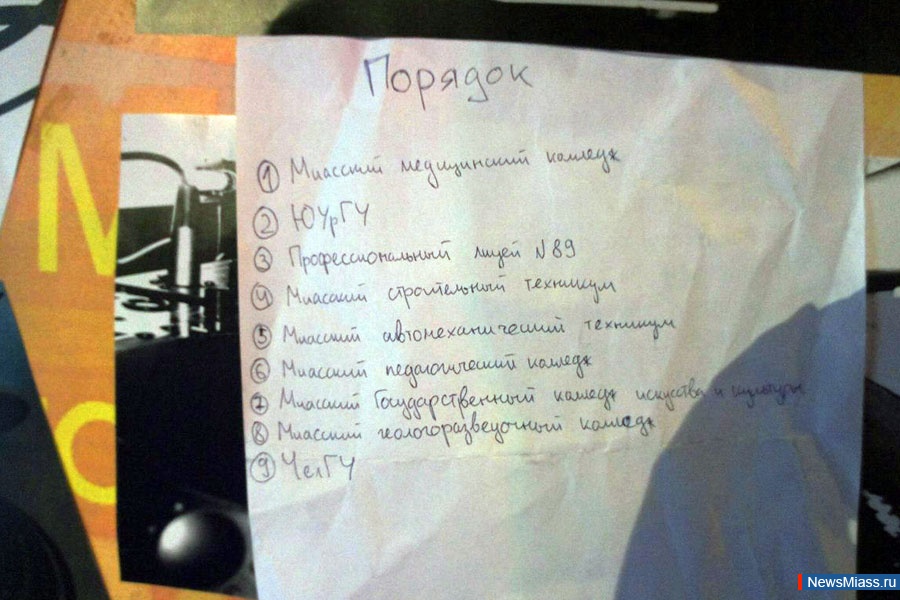 Порядок
① Миасский медицинский колледж
② ЮУрГУ
③ Профессиональный лицей №89
④ Миасский строительный техникум
⑤ Миасский автомеханический техникум
⑥ Миасский педагогический колледж
⑦ Миасский Государственный колледж искусства и культуры
⑧ Миасский геологоразведочный колледж
⑨ ЧелГУ
NewsMiass.ru